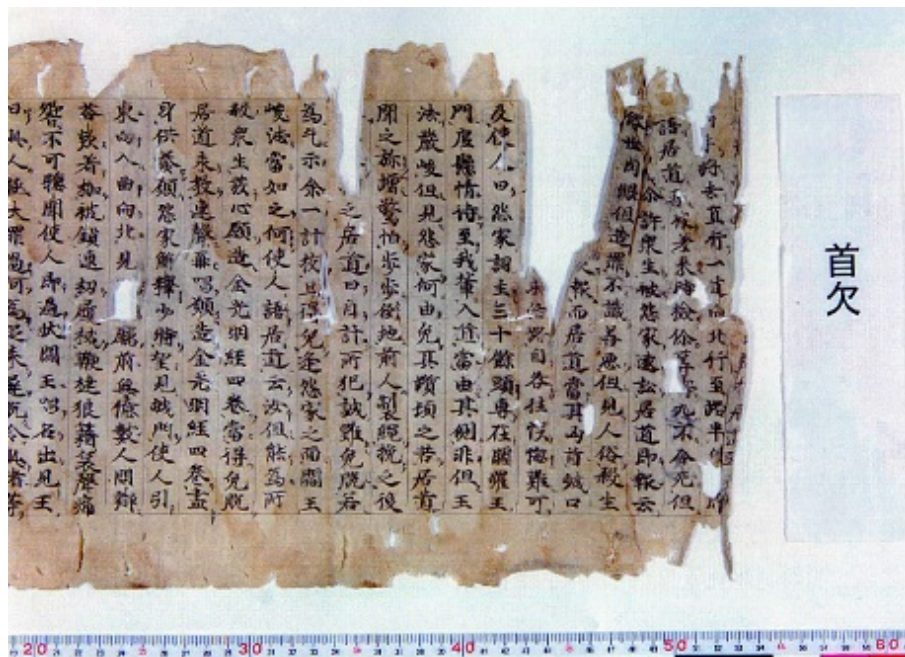 去直行一道向北行至路半使
語居道吾被差來時檢你筭壽元不合死但
你許衆生被怨家逮訟居道即報云
世間眼但造罪不識善惡但見人俗殺生
報而居道當其凶首緘口
自咎往悮悔難可
及使人曰怨家詞主三十餘頭專在閻羅王
門底懸情待至我輩入道當由其側非但王
法嚴峻但見怨家何由免其躓頓之苦居道
聞之弥增驚怕步步倒地前人掣繩挽之後
之居道曰自計所犯誠難免脫若
為乞示余一計校且得免逢怨家之面閻王
峻法當如之何使人語居道云汝但能為所
殺衆生發心願造金光明經四卷當得免脫
居道求教連聲再唱願造金光明經四卷盡
身供養願怨家解釋少時望見城門使人引
東向入曲向北見 廳前無億數人問辯
荅款著枷被鎖遭杻履械鞭撻狼籍哀聲痛
響不可聽聞使人即過狀閻王唱名出見王
曰此人極大罪過何
首欠
20
30
40
50
60